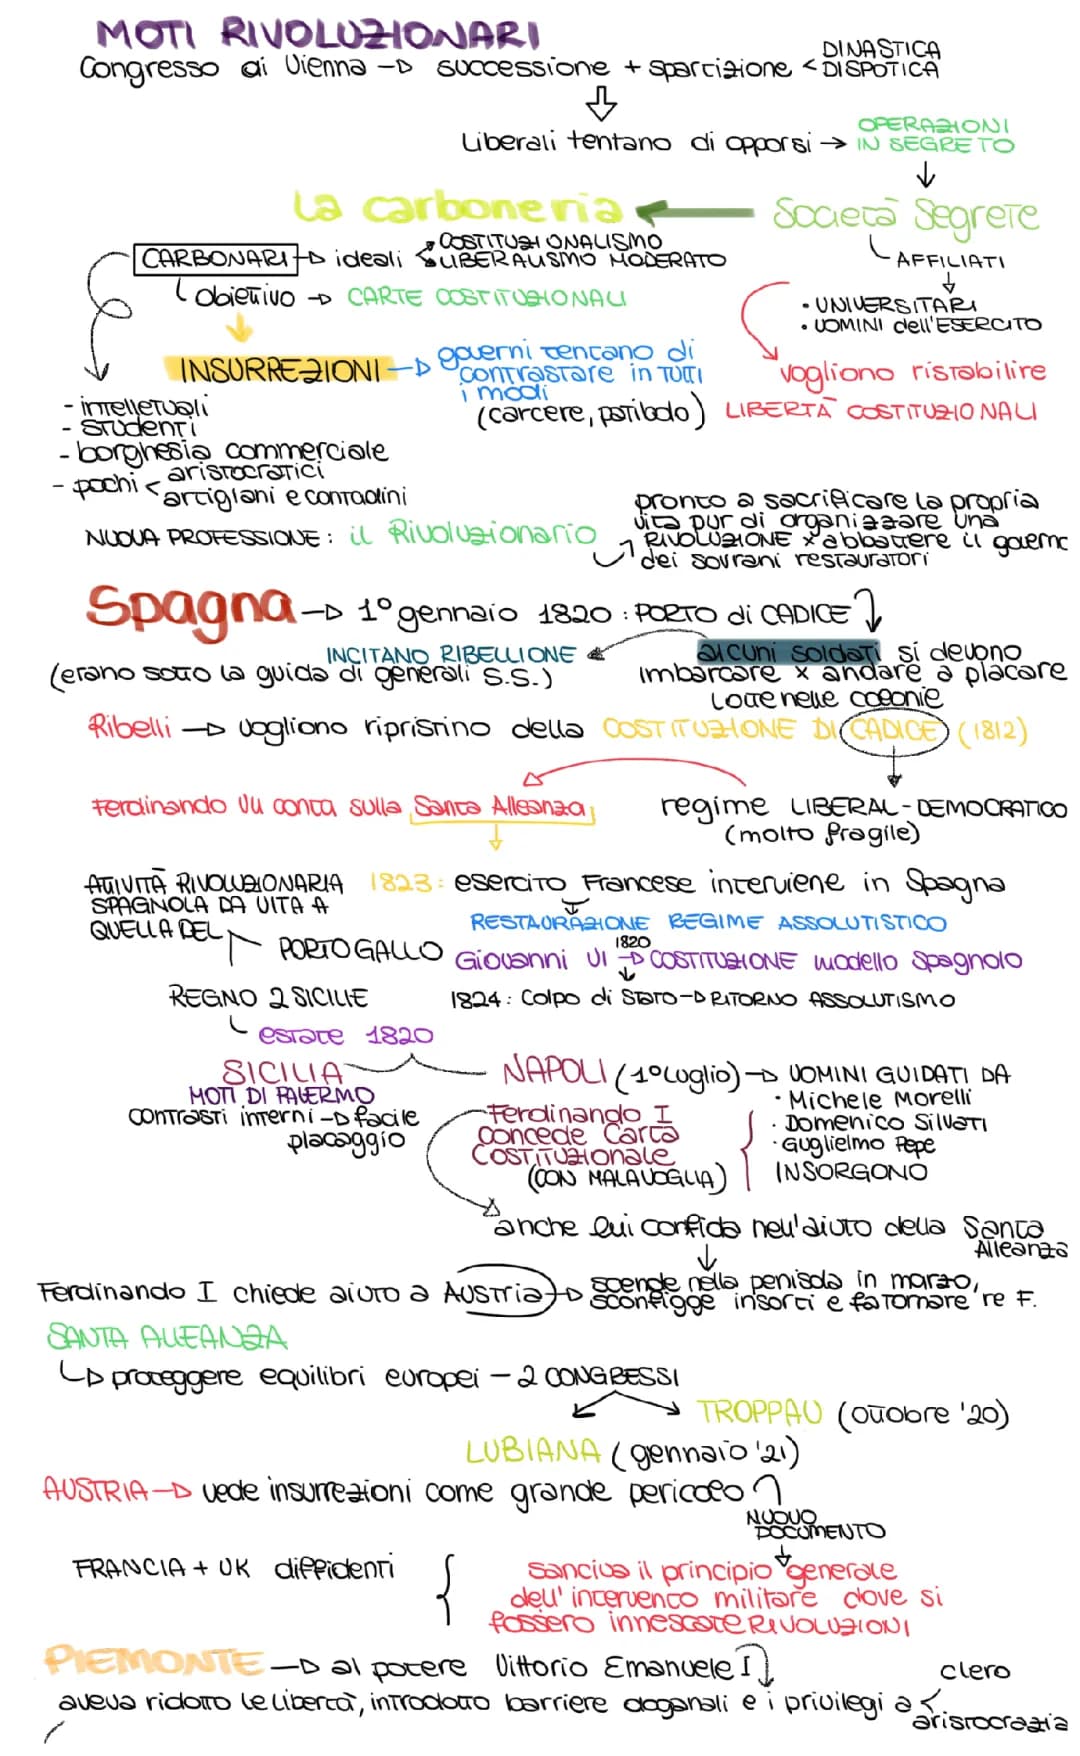 MOTI RIVOLUZIONARI
Congresso di Vienna → successione + spartizione < DINASTICA
DISPOTICA
Liberali tentano di opporsi → OPERAZIONI
IN SEGRETO
La carboneria ← Società Segrete
CARBONARI → ideali COSTITUZIONALISMO
LIBERALISMO MODERATO
AFFILIATI
obiettivo → CARTE COSTITUZIONALI
• UNIVERSITARI
• UOMINI dell'ESERCITO
INSURREZIONI → governi tentano di
contrastare in TUTTI
i modi
(carcere, patibolo)
vogliono ristabilire
LIBERTÀ COSTITUZIONALI
- intelletuali
- studenti
- borghesia commerciale
- pochi < aristocratici
artigiani e contadini
NUOVA PROFESSIONE: il Rivoluzionario
pronto a sacrificare la propria
vita pur di organizzare una
RIVOLUZIONE x abbattere il governo
dei sovrani restauratori
Spagna → 1° gennaio 1820 : PORTO di CADICE
alcuni soldati si devono
imbarcare x andare a placare
lotte nelle colonie
INCITANO RIBELLIONE
(erano sotto la guida di generali S.S.)
Ribelli → vogliono ripristino della COSTITUZIONE DI CADICE (1812)
Ferdinando VII conta sulla Santa Alleanza
regime LIBERAL-DEMOCRATICO
(molto fragile)
1823: esercito Francese interviene in Spagna
RESTAURAZIONE REGIME ASSOLUTISTICO
ATTIVITÀ RIVOLUZIONARIA
SPAGNOLA DA VITA A
QUELLA DEL
PORTOGALLO Giovanni VI → 1820 COSTITUZIONE modello Spagnolo
1824: Colpo di Stato → RITORNO ASSOLUTISMO
REGNO 2 SICILIE
estate 1820
SICILIA
MOTI DI PALERMO
contrasti interni → facile
placaggio
NAPOLI (1° Luglio) → UOMINI GUIDATI DA
• Michele Morelli
• Domenico Silvati
• Guglielmo Pepe
INSORGONO
Ferdinando I
concede Carta
Costituzionale
(CON MALAVOGLIA)
anche lui confida nell'aiuto della Santa
Alleanza
Ferdinando I chiede aiuto a Austria → scende nella penisola in marzo,
sconfigge insorti e fa tornare re F.
SANTA ALLEANZA
↳ proteggere equilibri europei - 2 CONGRESSI
TROPPAU (ottobre '20)
LUBIANA (gennaio '21)
AUSTRIA → vede insurrezioni come grande pericolo
NUOVO
DOCUMENTO
FRANCIA + UK diffidenti
sanciva il principio generale
dell'intervento militare dove si
fossero innescate RIVOLUZIONI
PIEMONTE → al potere Vittorio Emanuele I
aveva ridotto le libertà, introdotto barriere doganali e i privilegi a < clero
aristocrazia